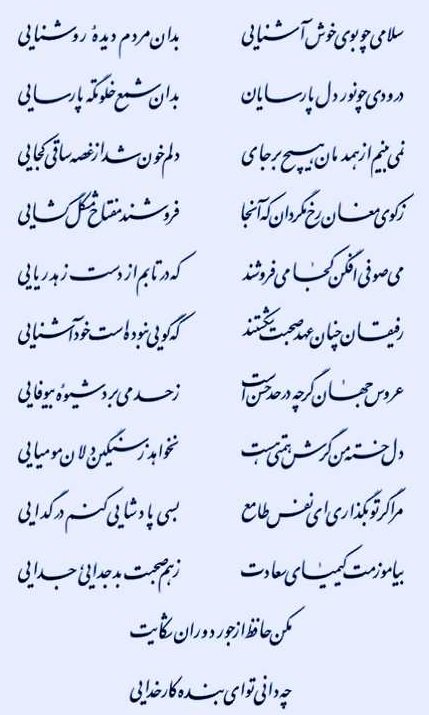 سلامی چو بوی خوش آشنایی بدان مردم دیدهٔ روشنایی
درودی چو نور دل پارسایان بدان شمع خلوتگه پارسایی
نمی‌بینم از همدمان هیچ بر جای دلم خون شد از غصه ساقی کجایی
ز کوی مغان رخ مگردان که آنجا فروشند مفتاح مشکل گشایی
می صوفی افکن کجا می‌فروشند که در تابم از دست زهد ریایی
رفیقان چنان عهد صحبت شکستند که گویی نبوده‌است خود آشنایی
عروس جهان گرچه در حد حسن است ز حد می‌برد شیوهٔ بیوفایی
دل خسته من گرش همتی هست نخواهد ز سنگین دلان مومیایی
مرا گر تو بگذاری ای نفس طامع بسی پادشایی کنم در گدایی
بیاموزمت کیمیای سعادت ز هم صحبت بد جدایی جدایی
مکن حافظ از جور دوران شکایت
چه دانی تو ای بنده کار خدایی